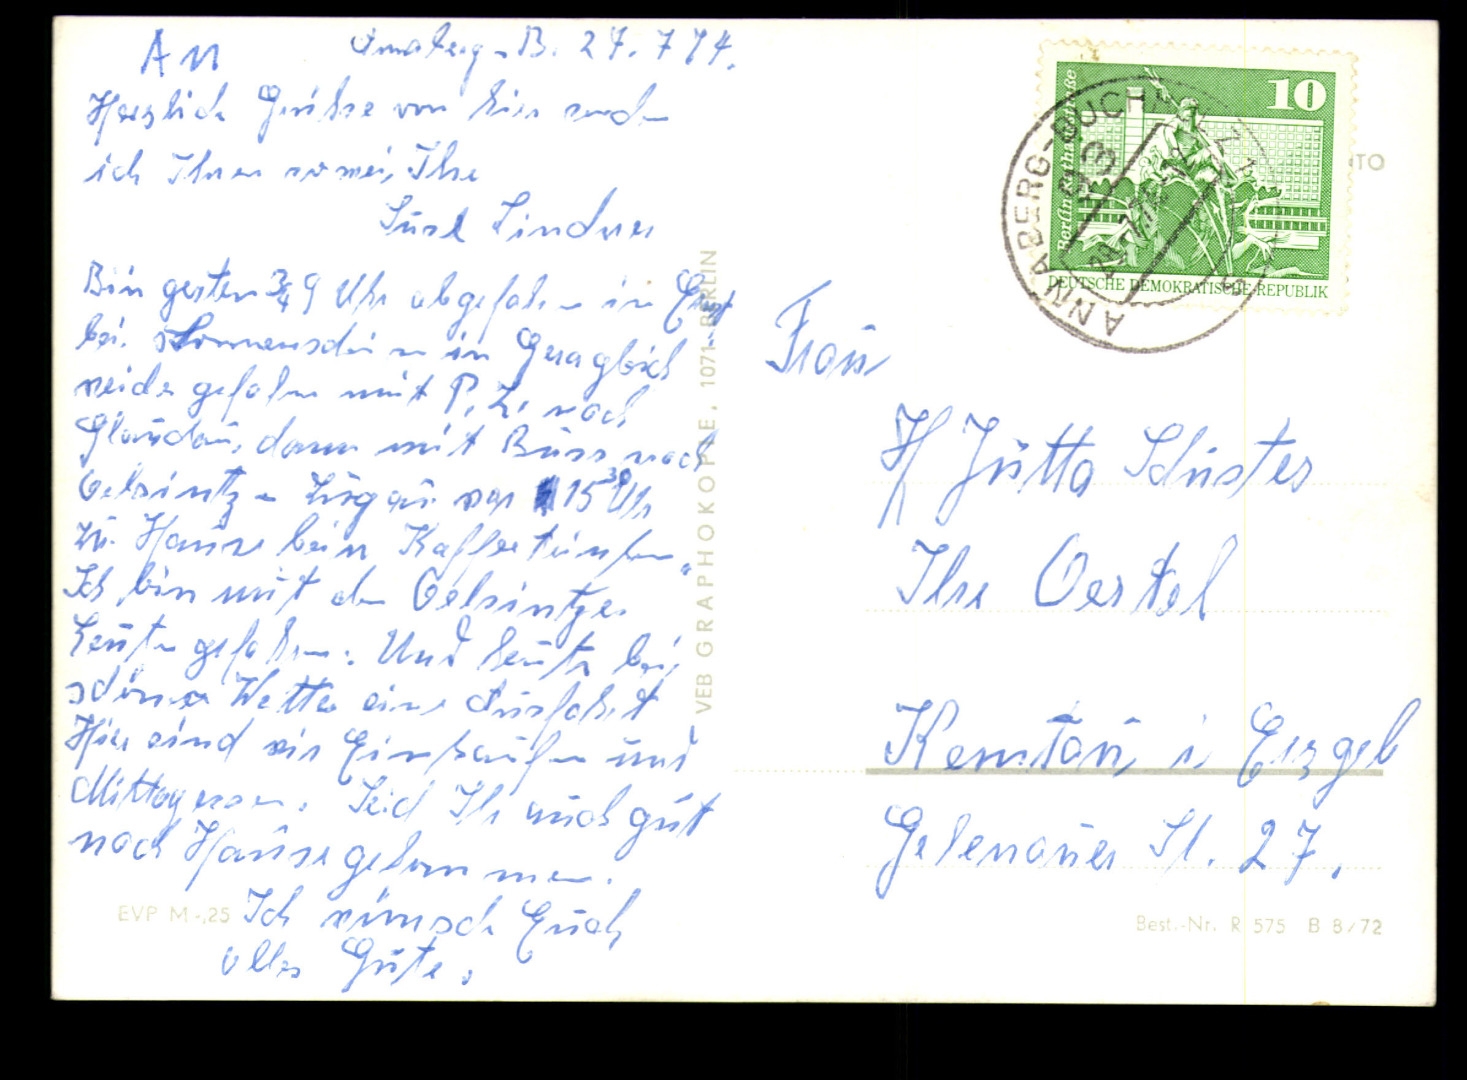 An
Annaberg-B. 27.7 74.
Herzlich Grüße von hier
ich Ihnen Ihre
Lindner
Bin gestern 3/4 9 Uhr abgefahren in
bei Sonnenschein in Gera gleich
weider gefahren mit P. Z. nach
Glauchau, dann mit Buss nach
Oelsnitz - Lugau war 15 30 Uhr
zu Hause beim Kaffeetrinken.
Ich bin mit den Oelsnitzer
Leuten gefahren. Und heute bei
schönen Wetter eine Ausfahrt
Hier sind wir Einkaufen und
Mittagessen. Seid Ihr auch gut
nach Hause gekommen.
Ich wünsch Euch
alles Gute.
EVP M -,25
VEB GRAPHOKOPIE, 1071 BERLIN
10
Berlin, Rathausstraße
DEUTSCHE DEMOKRATISCHE REPUBLIK
ANNABERG-BUCHHOLZ 1
93
Frau
Jutta Schuster
Oertel
Kemtau i Erzgeb
Gelenauer St. 27.
Best.-Nr. R 575 B 8/72